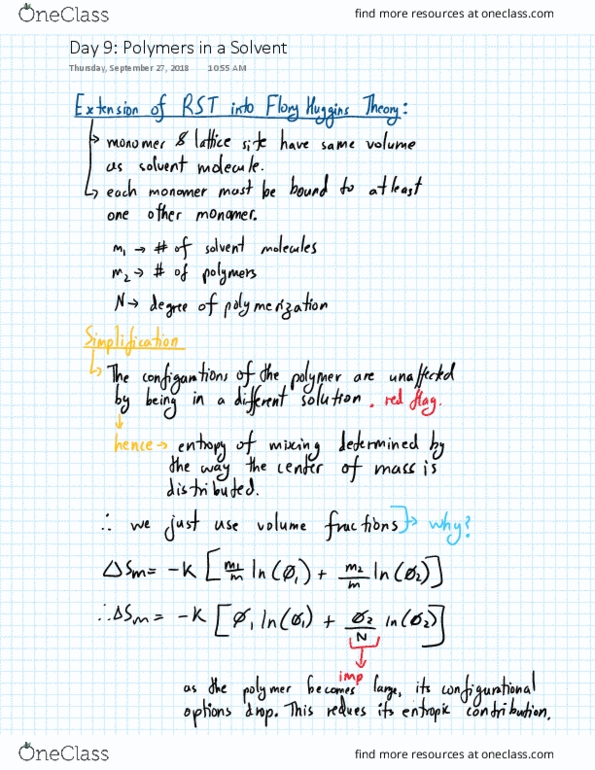 OneClass
find more resources at oneclass.com
Day 9: Polymers in a Solvent
Thursday, September 27, 2018 10:55 AM
Extension of RST into Flory Huggins Theory:
↳ monomer & lattice site have same volume
as solvent molecule.
↳ each monomer must be bound to atleast
one other monomer.
m₁ → # of solvent molecules
m₂ → # of polymers
N → degree of polymerization
Simplification
↳ The configurations of the polymer are unaffected
by being in a different solution. red flag.
hence → entropy of mixing determined by
the way the center of mass is
distributed.
∴ we just use volume fractions → why?
ΔSm = -K [m₁/m ln(Ø₁) + m₂/m ln(Ø₂)]
∴ ΔSm = -K [Ø₁ ln(Ø₁) + Ø₂/N ln(Ø₂)]
imp
as the polymer becomes large, its configurational
options drop. This redues its entropic contribution.
OneClass
find more resources at oneclass.com